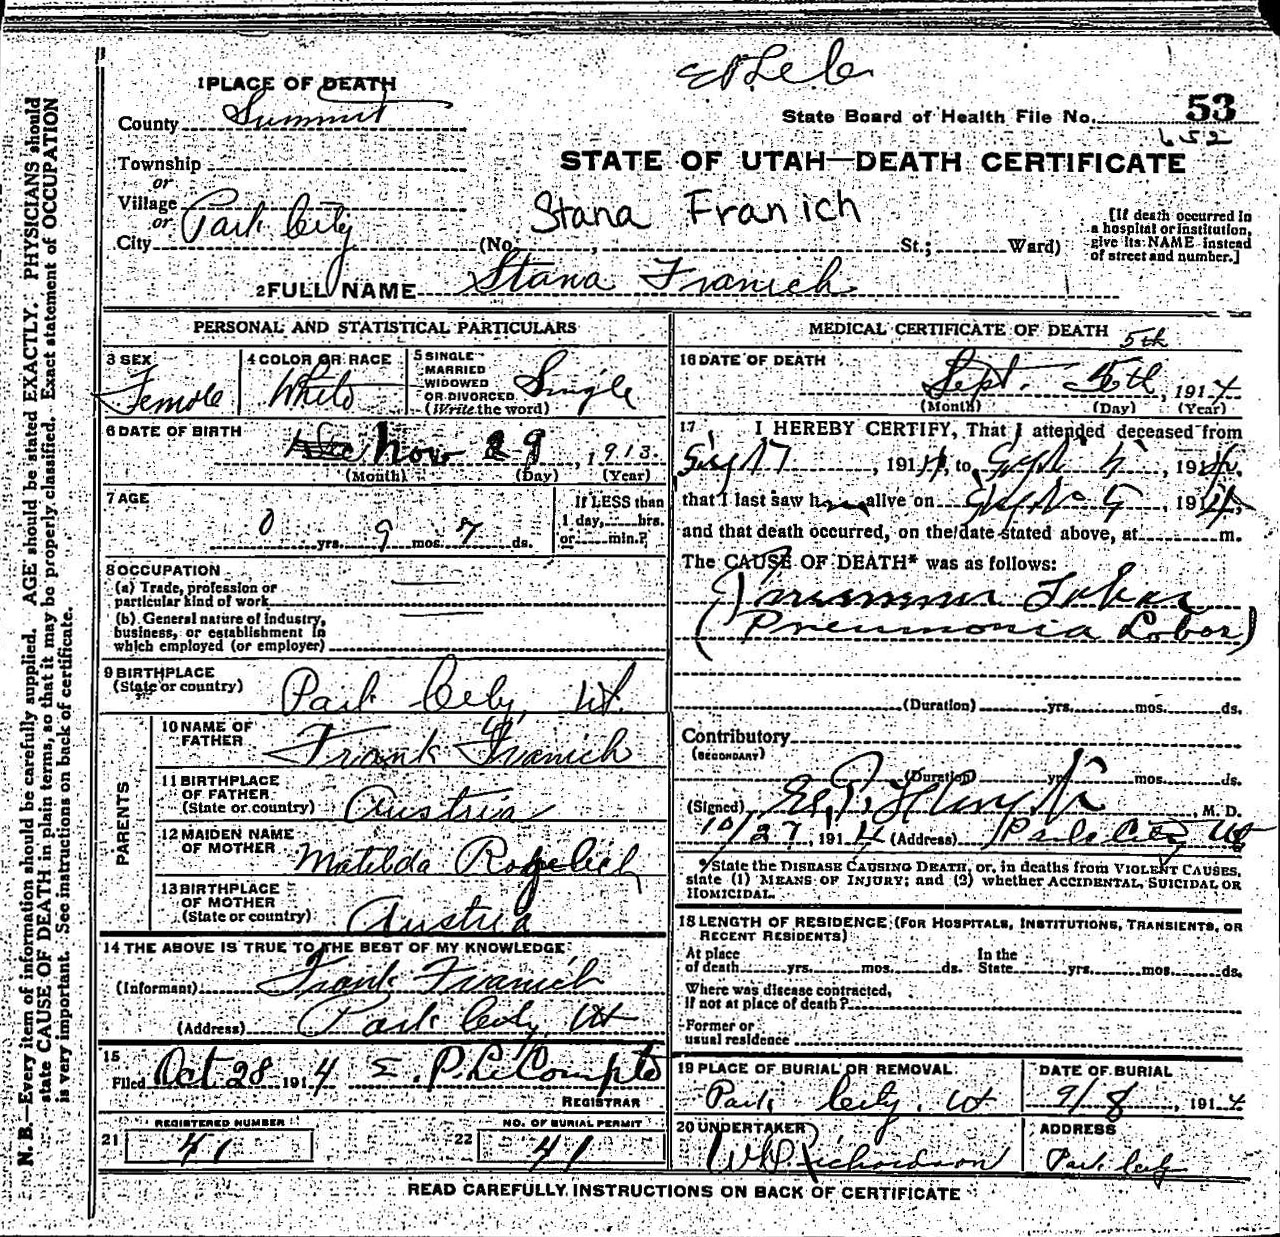 1 PLACE OF DEATH
County Summit
State Board of Health File No. 53
652
STATE OF UTAH—DEATH CERTIFICATE
Township
or
Village
or
City Park City
Stana Franich
(No. , St.; Ward)
[If death occurred in
a hospital or institution,
give its NAME instead
of street and number.]
2 FULL NAME Stana Franich
PERSONAL AND STATISTICAL PARTICULARS
3 SEX
Female
4 COLOR OR RACE
White
5 SINGLE
MARRIED
WIDOWED
OR DIVORCED
(Write the word)
Single
6 DATE OF BIRTH
Nov 29, 1913
(Month) (Day) (Year)
7 AGE
0 yrs. 9 mos. 7 ds.
If LESS than
1 day, hrs.
or min.?
8 OCCUPATION
(a) Trade, profession or
particular kind of work
(b) General nature of industry,
business, or establishment in
which employed (or employer)
9 BIRTHPLACE
(State or country)
Park City, Ut.
PARENTS
10 NAME OF
FATHER
Frank Franich
11 BIRTHPLACE
OF FATHER
(State or country)
Austria
12 MAIDEN NAME
OF MOTHER
Matilda
13 BIRTHPLACE
OF MOTHER
(State or country)
Austria
14 THE ABOVE IS TRUE TO THE BEST OF MY KNOWLEDGE
(Informant) Frank Franich
(Address) Park City, Ut
15
Filed Oct 28 1914 E. P. LeCompte
REGISTRAR
REGISTERED NUMBER
21 41
NO. OF BURIAL PERMIT
22 41
MEDICAL CERTIFICATE OF DEATH
5th
16 DATE OF DEATH
Sept. 5th, 1914
(Month) (Day) (Year)
17 I HEREBY CERTIFY, That I attended deceased from
, 1914, to , 1914,
that I last saw h alive on 1914,
and that death occurred, on the date stated above, at m.
The CAUSE OF DEATH* was as follows:
Pneumonia Lobar
(Pneumonia Lobar)
(Duration) yrs. mos. ds.
Contributory
(SECONDARY)
(Duration) yrs. mos. ds.
(Signed) , M. D.
10/27, 1914 (Address) Park City Ut
*State the DISEASE CAUSING DEATH, or, in deaths from VIOLENT CAUSES,
state (1) MEANS OF INJURY; and (2) whether ACCIDENTAL, SUICIDAL OR
HOMICIDAL.
18 LENGTH OF RESIDENCE (FOR HOSPITALS, INSTITUTIONS, TRANSIENTS, OR
RECENT RESIDENTS)
At place
of death yrs. mos. ds.
In the
State yrs. mos. ds.
Where was disease contracted,
if not at place of death?
Former or
usual residence
19 PLACE OF BURIAL OR REMOVAL
Park City, Ut
DATE OF BURIAL
9/8, 1914
20 UNDERTAKER
Richardson
ADDRESS
Park City
READ CAREFULLY INSTRUCTIONS ON BACK OF CERTIFICATE
N. B.—Every item of information should be carefully supplied. AGE should be stated EXACTLY. PHYSICIANS should
state CAUSE OF DEATH in plain terms, so that it may be properly classified. Exact statement of OCCUPATION
is very important. See instructions on back of certificate.